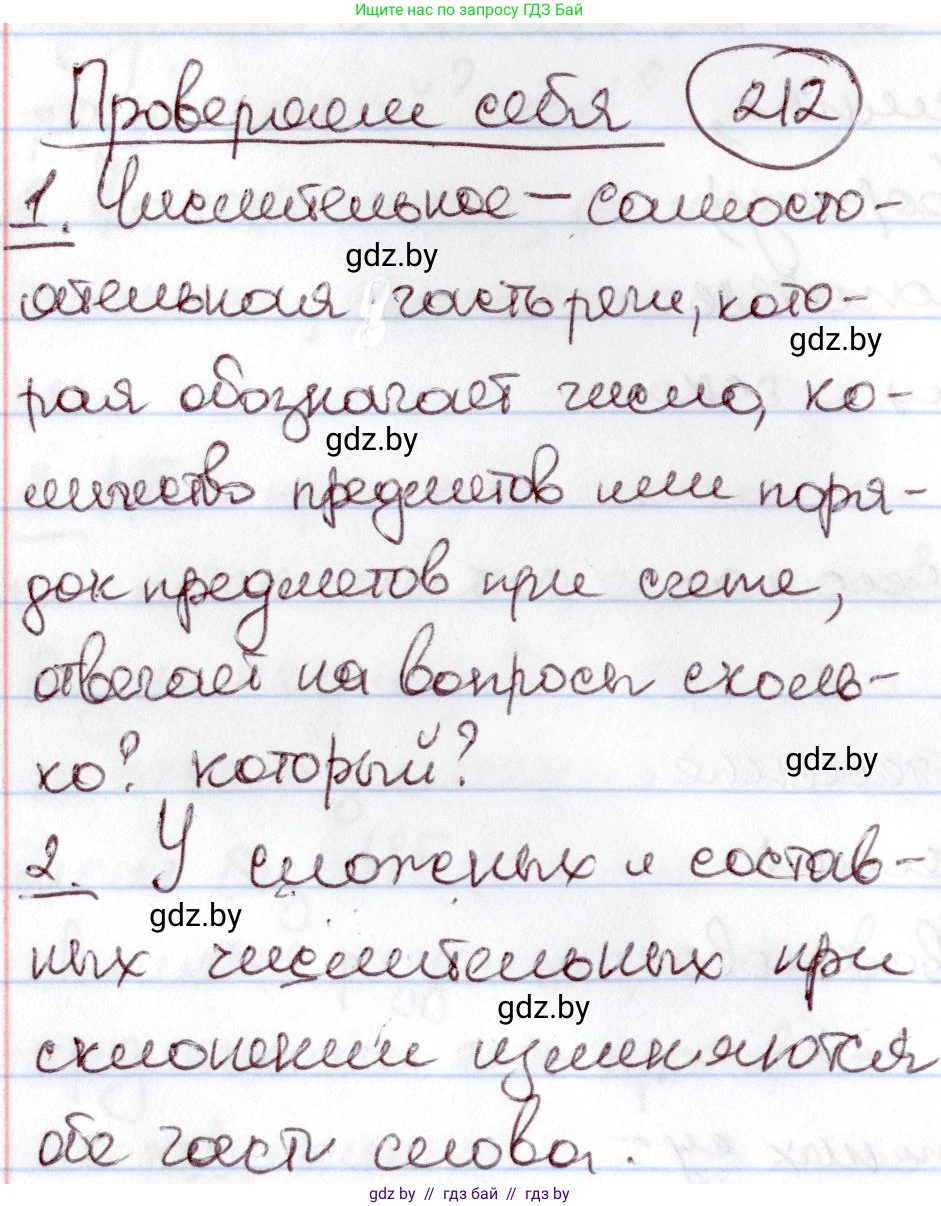 Ищите нас по запросу ГДЗ Бай
Проверяем себя 212
1. Числительное – самосто-
gdz.by
ятельная часть речи, кото-
gdz.by
рая обозначает число, ко-
gdz.by
личество предметов или поря-
док предметов при счете,
отвечает на вопросы сколь-
ко? который?
gdz.by
2. У сложных и состав-
gdz.by
ных числительных при
gdz.by
склонении изменяются
обе части слова.
gdz.by // гдз бай // гдз by